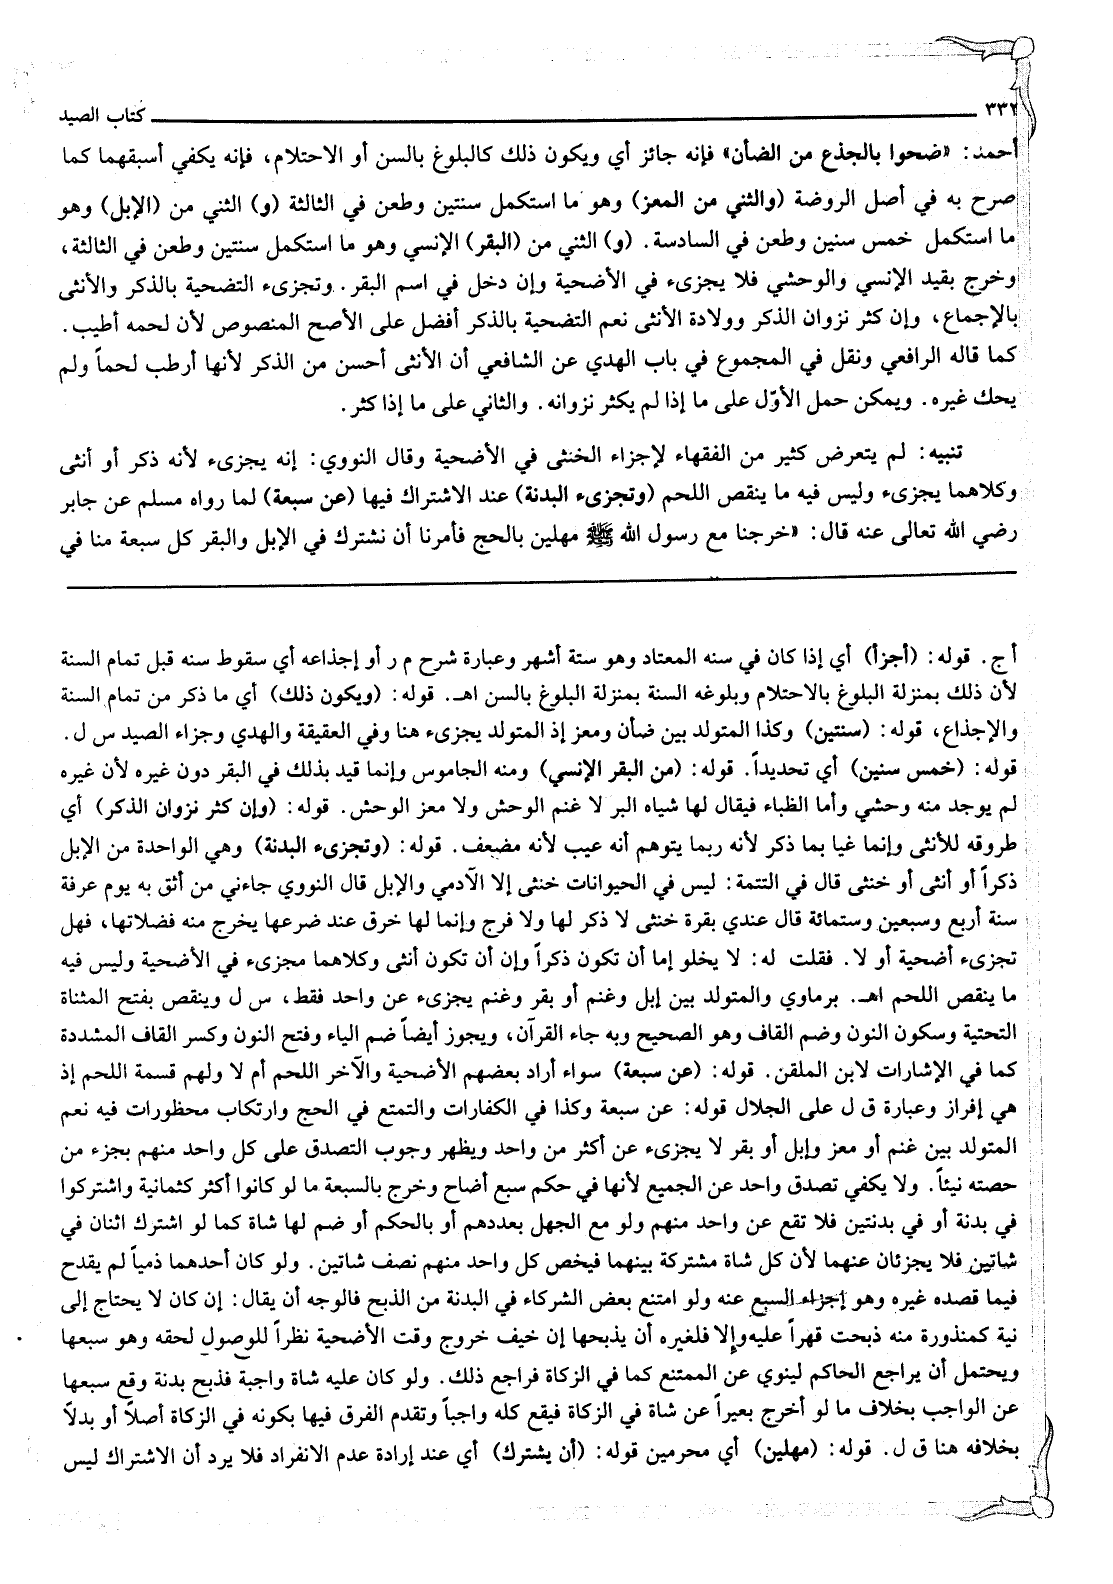 ٣٣٢
كتاب الصيد
أحمد: «ضحوا بالجذع من الضأن» فإنه جائز أي ويكون ذلك كالبلوغ بالسن أو الاحتلام، فإنه يكفي أسبقهما كما
صرح به في أصل الروضة (والثني من المعز) وهو ما استكمل سنتين وطعن في الثالثة (و) الثني من (الإبل) وهو
ما استكمل خمس سنين وطعن في السادسة. (و) الثني من (البقر) الإنسي وهو ما استكمل سنتين وطعن في الثالثة،
وخرج بقيد الإنسي والوحشي فلا يجزىء في الأضحية وإن دخل في اسم البقر. وتجزىء التضحية بالذكر والأنثى
بالإجماع، وإن كثر نزوان الذكر وولادة الأنثى نعم التضحية بالذكر أفضل على الأصح المنصوص لأن لحمه أطيب.
كما قاله الرافعي ونقل في المجموع في باب الهدي عن الشافعي أن الأنثى أحسن من الذكر لأنها أرطب لحماً ولم
يحك غيره. ويمكن حمل الأوّل على ما إذا لم يكثر نزوانه. والثاني على ما إذا كثر.
تنبيه: لم يتعرض كثير من الفقهاء لإجزاء الخنثى في الأضحية وقال النووي: إنه يجزىء لأنه ذكر أو أنثى
وكلاهما يجزىء وليس فيه ما ينقص اللحم (وتجزىء البدنة) عند الاشتراك فيها (عن سبعة) لما رواه مسلم عن جابر
رضي الله تعالى عنه قال: «خرجنا مع رسول الله ﷺ مهلين بالحج فأمرنا أن نشترك في الإبل والبقر كل سبعة منا في
أ ج. قوله: (أجزأ) أي إذا كان في سنه المعتاد وهو ستة أشهر وعبارة شرح م ر أو إجذاعه أي سقوط سنه قبل تمام السنة
لأن ذلك بمنزلة البلوغ بالاحتلام وبلوغه السنة بمنزلة البلوغ بالسن اهـ. قوله: (ويكون ذلك) أي ما ذكر من تمام السنة
والإجذاع، قوله: (سنتين) وكذا المتولد بين ضأن ومعز إذ المتولد يجزىء هنا وفي العقيقة والهدي وجزاء الصيد س ل.
قوله: (خمس سنين) أي تحديداً. قوله: (من البقر الإنسي) ومنه الجاموس وإنما قيد بذلك في البقر دون غيره لأن غيره
لم يوجد منه وحشي وأما الظباء فيقال لها شياه البر لا غنم الوحش ولا معز الوحش. قوله: (وإن كثر نزوان الذكر) أي
طروقه للأنثى وإنما غيا بما ذكر لأنه ربما يتوهم أنه عيب لأنه مضعف. قوله: (وتجزىء البدنة) وهي الواحدة من الإبل
ذكراً أو أنثى أو خنثى قال في التتمة: ليس في الحيوانات خنثى إلا الآدمي والإبل قال النووي جاءني من أثق به يوم عرفة
سنة أربع وسبعين وستمائة قال عندي بقرة خنثى لا ذكر لها ولا فرج وإنما لها خرق عند ضرعها يخرج منه فضلاتها، فهل
تجزىء أضحية أو لا. فقلت له: لا يخلو إما أن تكون ذكراً وإن أن تكون أنثى وكلاهما مجزىء في الأضحية وليس فيه
ما ينقص اللحم اهـ. برماوي والمتولد بين إبل وغنم أو بقر وغنم يجزىء عن واحد فقط، س ل وينقص بفتح المثناة
التحتية وسكون النون وضم القاف وهو الصحيح وبه جاء القرآن، ويجوز أيضاً ضم الياء وفتح النون وكسر القاف المشددة
كما في الإشارات لابن الملقن. قوله: (عن سبعة) سواء أراد بعضهم الأضحية والآخر اللحم أم لا ولهم قسمة اللحم إذ
هي إفراز وعبارة ق ل على الجلال قوله: عن سبعة وكذا في الكفارات والتمتع في الحج وارتكاب محظورات فيه نعم
المتولد بين غنم أو معز وإبل أو بقر لا يجزىء عن أكثر من واحد ويظهر وجوب التصدق على كل واحد منهم بجزء من
حصته نيئاً. ولا يكفي تصدق واحد عن الجميع لأنها في حكم سبع أضاح وخرج بالسبعة ما لو كانوا أكثر كثمانية واشتركوا
في بدنة أو في بدنتين فلا تقع عن واحد منهم ولو مع الجهل بعددهم أو بالحكم أو ضم لها شاة كما لو اشترك اثنان في
شاتين فلا يجزئان عنهما لأن كل شاة مشتركة بينهما فيخص كل واحد منهم نصف شاتين. ولو كان أحدهما ذمياً لم يقدح
فيما قصده غيره وهو إجزاء السبع عنه ولو امتنع بعض الشركاء في البدنة من الذبح فالوجه أن يقال: إن كان لا يحتاج إلى
نية كمنذورة منه ذبحت قهراً عليه وإلا فلغيره أن يذبحها إن خيف خروج وقت الأضحية نظراً للوصول لحقه وهو سبعها
ويحتمل أن يراجع الحاكم لينوي عن الممتنع كما في الزكاة فراجع ذلك. ولو كان عليه شاة واجبة فذبح بدنة وقع سبعها
عن الواجب بخلاف ما لو أخرج بعيراً عن شاة في الزكاة فيقع كله واجباً وتقدم الفرق فيها بكونه في الزكاة أصلاً أو بدلاً
بخلافه هنا ق ل. قوله: (مهلين) أي محرمين قوله: (أن يشترك) أي عند إرادة عدم الانفراد فلا يرد أن الاشتراك ليس